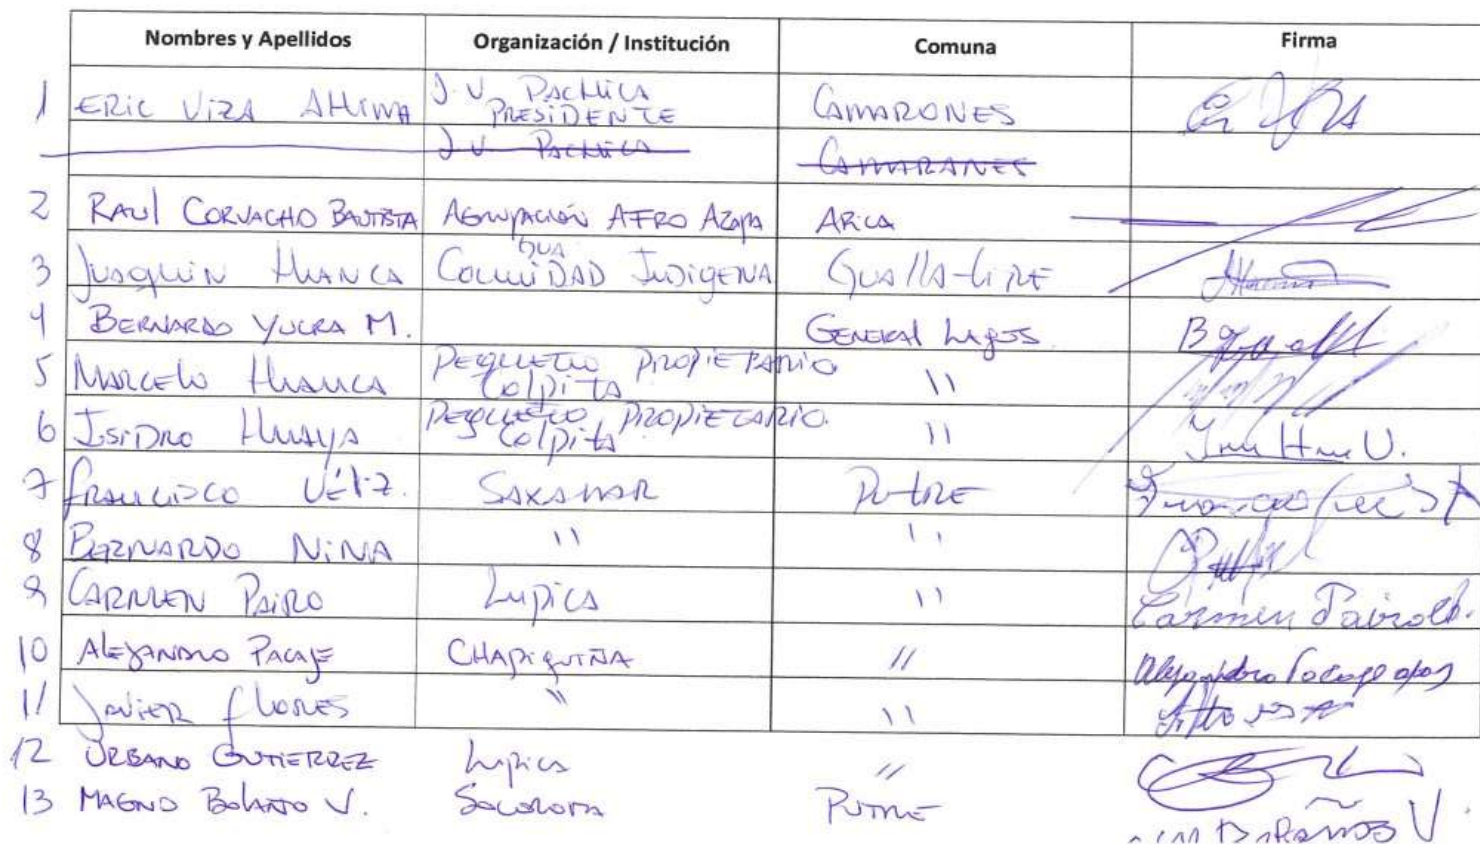 Nombres y Apellidos Organización / Institución Comuna Firma
1 ERIC VIZA J.V. PACHICA PRESIDENTE CAMARONES
J.V. PACHICA CAMARANES
2 RAUL CORVACHO BAUTISTA AGRUPACIÓN AFRO AZAPA ARICA
3 JUAQUIN HUANCA COMUIDAD INDIGENA GUALLA-TIRE
4 BERNARDO YUCRA M. GENERAL LAGOS
5 MARCELO HUANCA PEQUEÑO PROPIETARIO Colpita 11
6 ISIDRO HUAYA PEQUEÑO PROPIETARIO. Colpita 11
7 FRANCISCO VÉLIZ. SAXAMAR PUTRE
8 BERNARDO NINA 11 11
9 CARMEN PAIRO LUPICA 11 Carmen Pairo
10 ALEJANDRO PACAJE CHAPIQUIÑA 11 Alejandro
11 JAVIER FLORES 11 11
12 URBANO GUTIERREZ LUPICA 11
13 MAGNO BOLAÑO V. SOCOROMA PUTRE